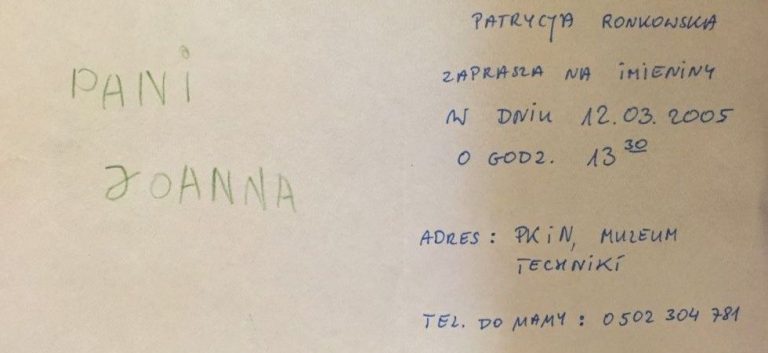 PANi
JOANNA
PATRYCJA RONKOWSKA
ZAPRASZA NA iMiENiNY
W DNiU 12.03.2005
O GODZ. 13 30
ADRES: PKiN, MUZEUM
TECHNiKi
TEL. DO MAMY: 0502 304 781